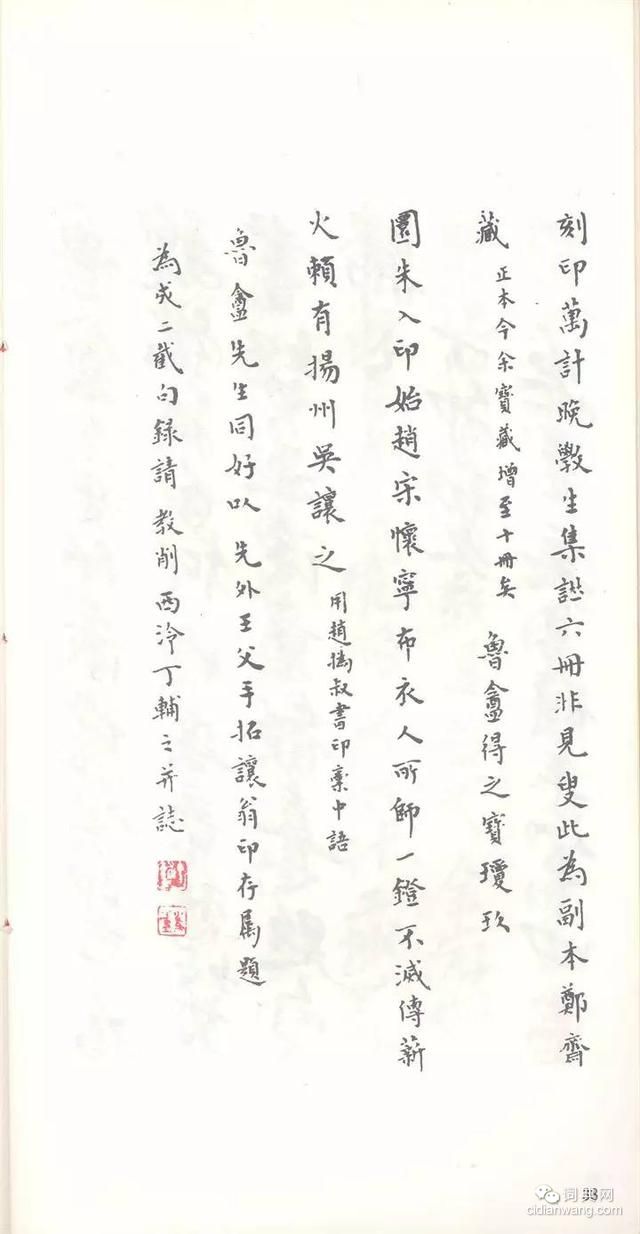 刻印萬計晚學生集譜六冊非見叟此為副本鄭齋
藏 正本今余寶藏增至十冊矣 魯盦得之寶瓊玖
圜朱入印始趙宋懷寧布衣人所師一鐙不滅傳薪
火賴有揚州吳讓之 用趙撝叔書印稾中語
魯盦先生同好以 先外王父手拓讓翁印存屬題
為成二截句録請 教削西泠丁輔之并誌
词典网
cidianwang.com